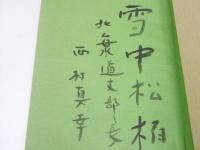 雪中松柏
北象道支部長
西村真幸